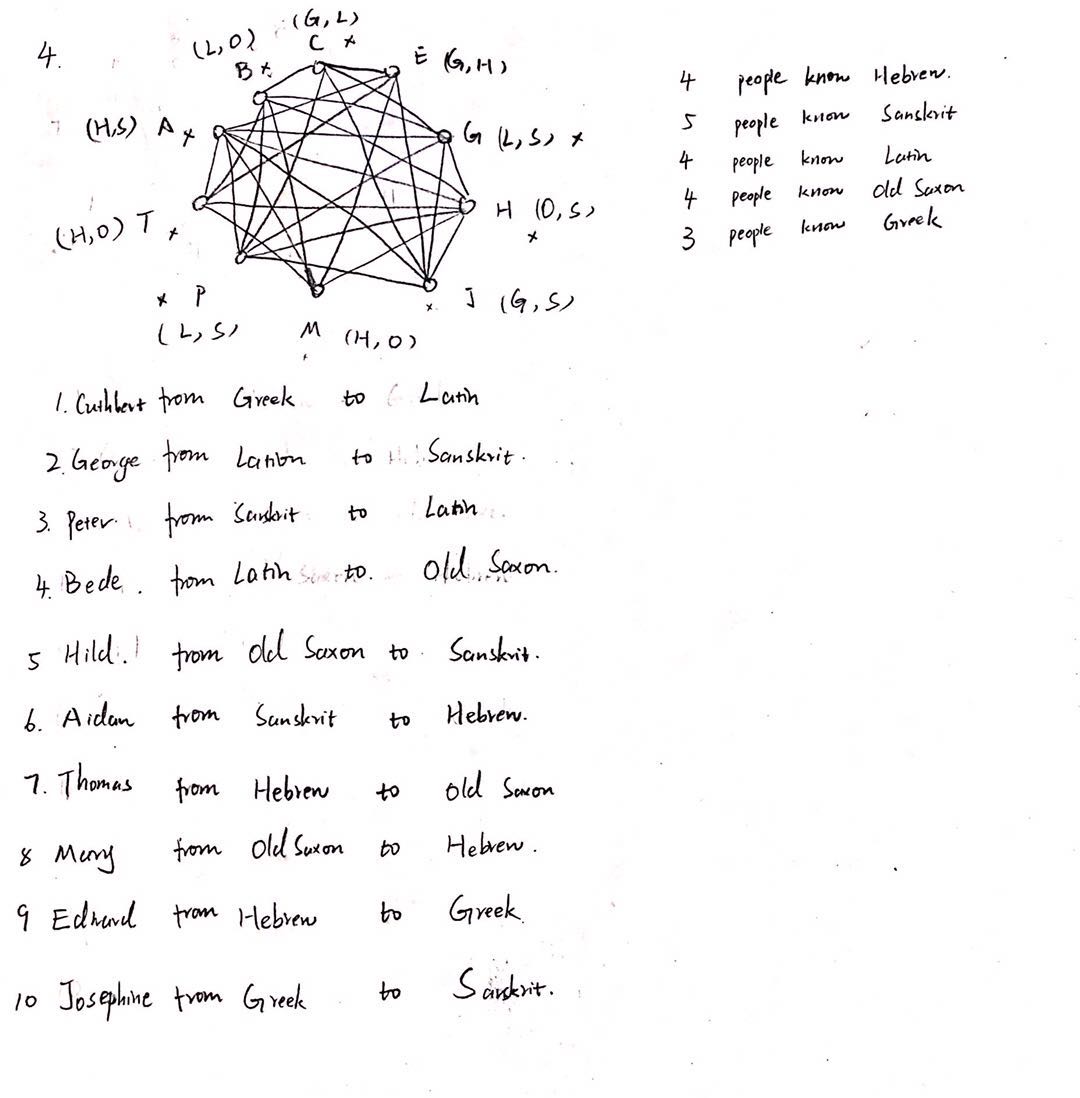 4.
(G, L)
(L, O) C x
B x E (G, H)
(H, S) A x G (L, S) x
(H, O) T x H (O, S)
x
x P x J (G, S)
(L, S) M (H, O)
4 people know Hebrew.
5 people know Sanskrit
4 people know Latin
4 people know Old Saxon
3 people know Greek
1. Cuthbert from Greek to Latin
2. George from to Sanskrit.
3. Peter from Sanskrit to Latin
4. Bede. from Latin to. Old Saxon.
5 Hild. from Old Saxon to Sanskrit.
6. Aidan from Sanskrit to Hebrew.
7. Thomas from Hebrew to Old Saxon
8 Mary from Old Saxon to Hebrew.
9 Edward from Hebrew to Greek
10 Josephine from Greek to Sanskrit.